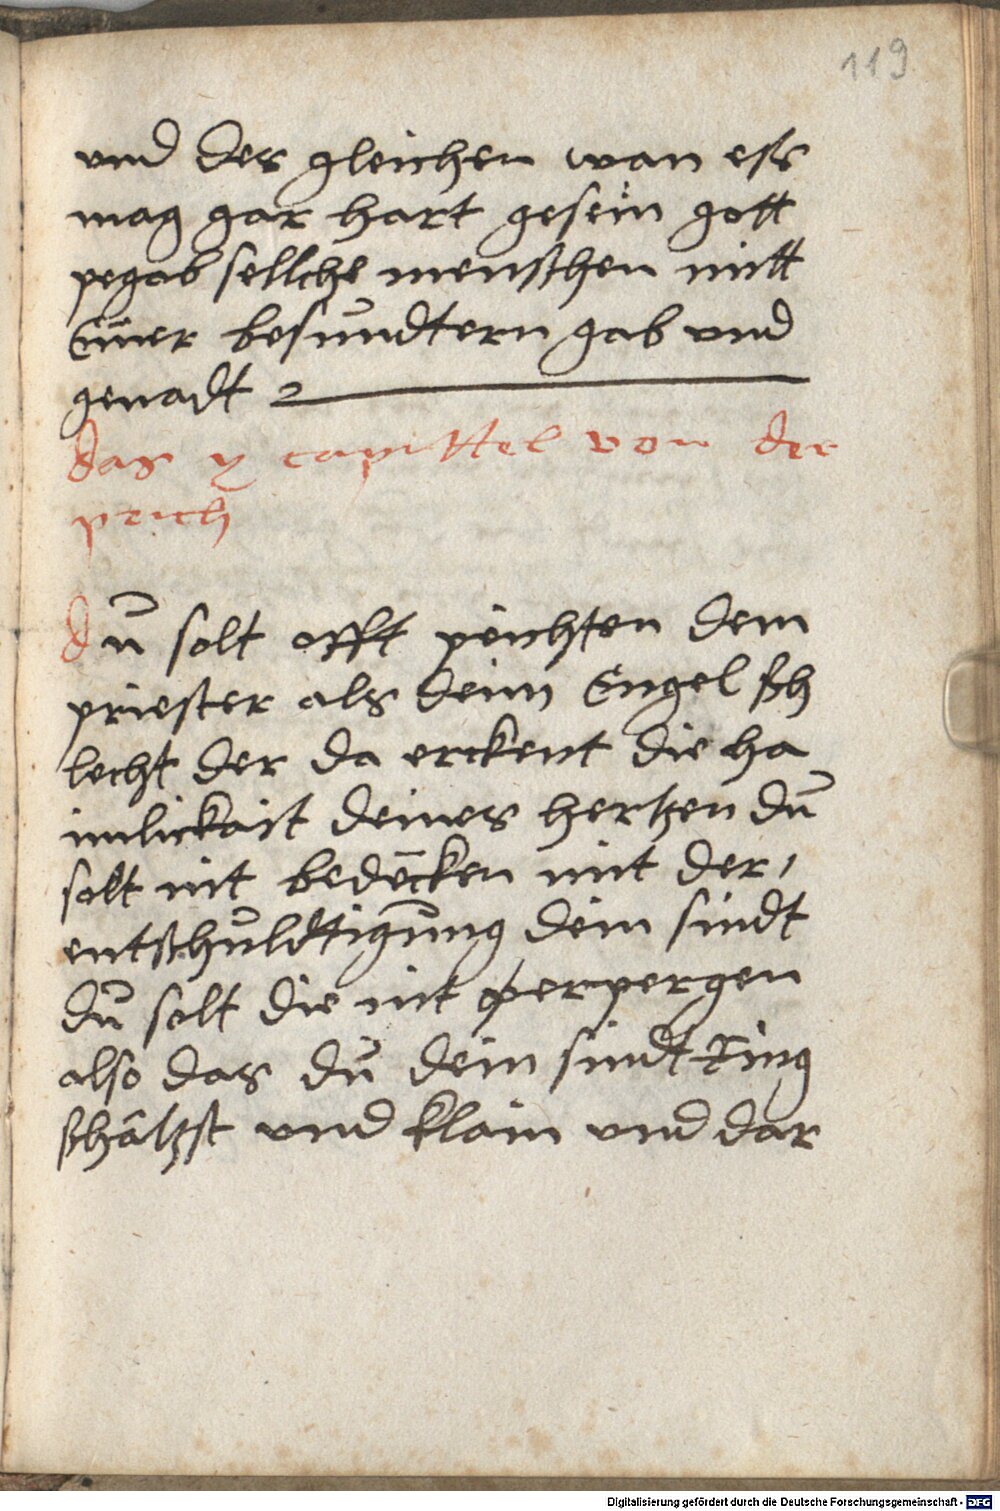 119
vnd der gleichen wan ess
mag gar hart gesein gott
pegab sellche menschen mitt
Einer besundtern gab vnd
genadt
das x capittel von der
peich
du solt offt peichten dem
priester als deim Engel sch
lecht der da erckent die ha
imlickait deines hertzen du
solt nit bedecken mit der
entschuldtigung dein sindt
du solt die nit verpergen
also das du dein sindt Ring
schätzst vnd klain vnd dar
Digitalisierung gefördert durch die Deutsche Forschungsgemeinschaft - DFG